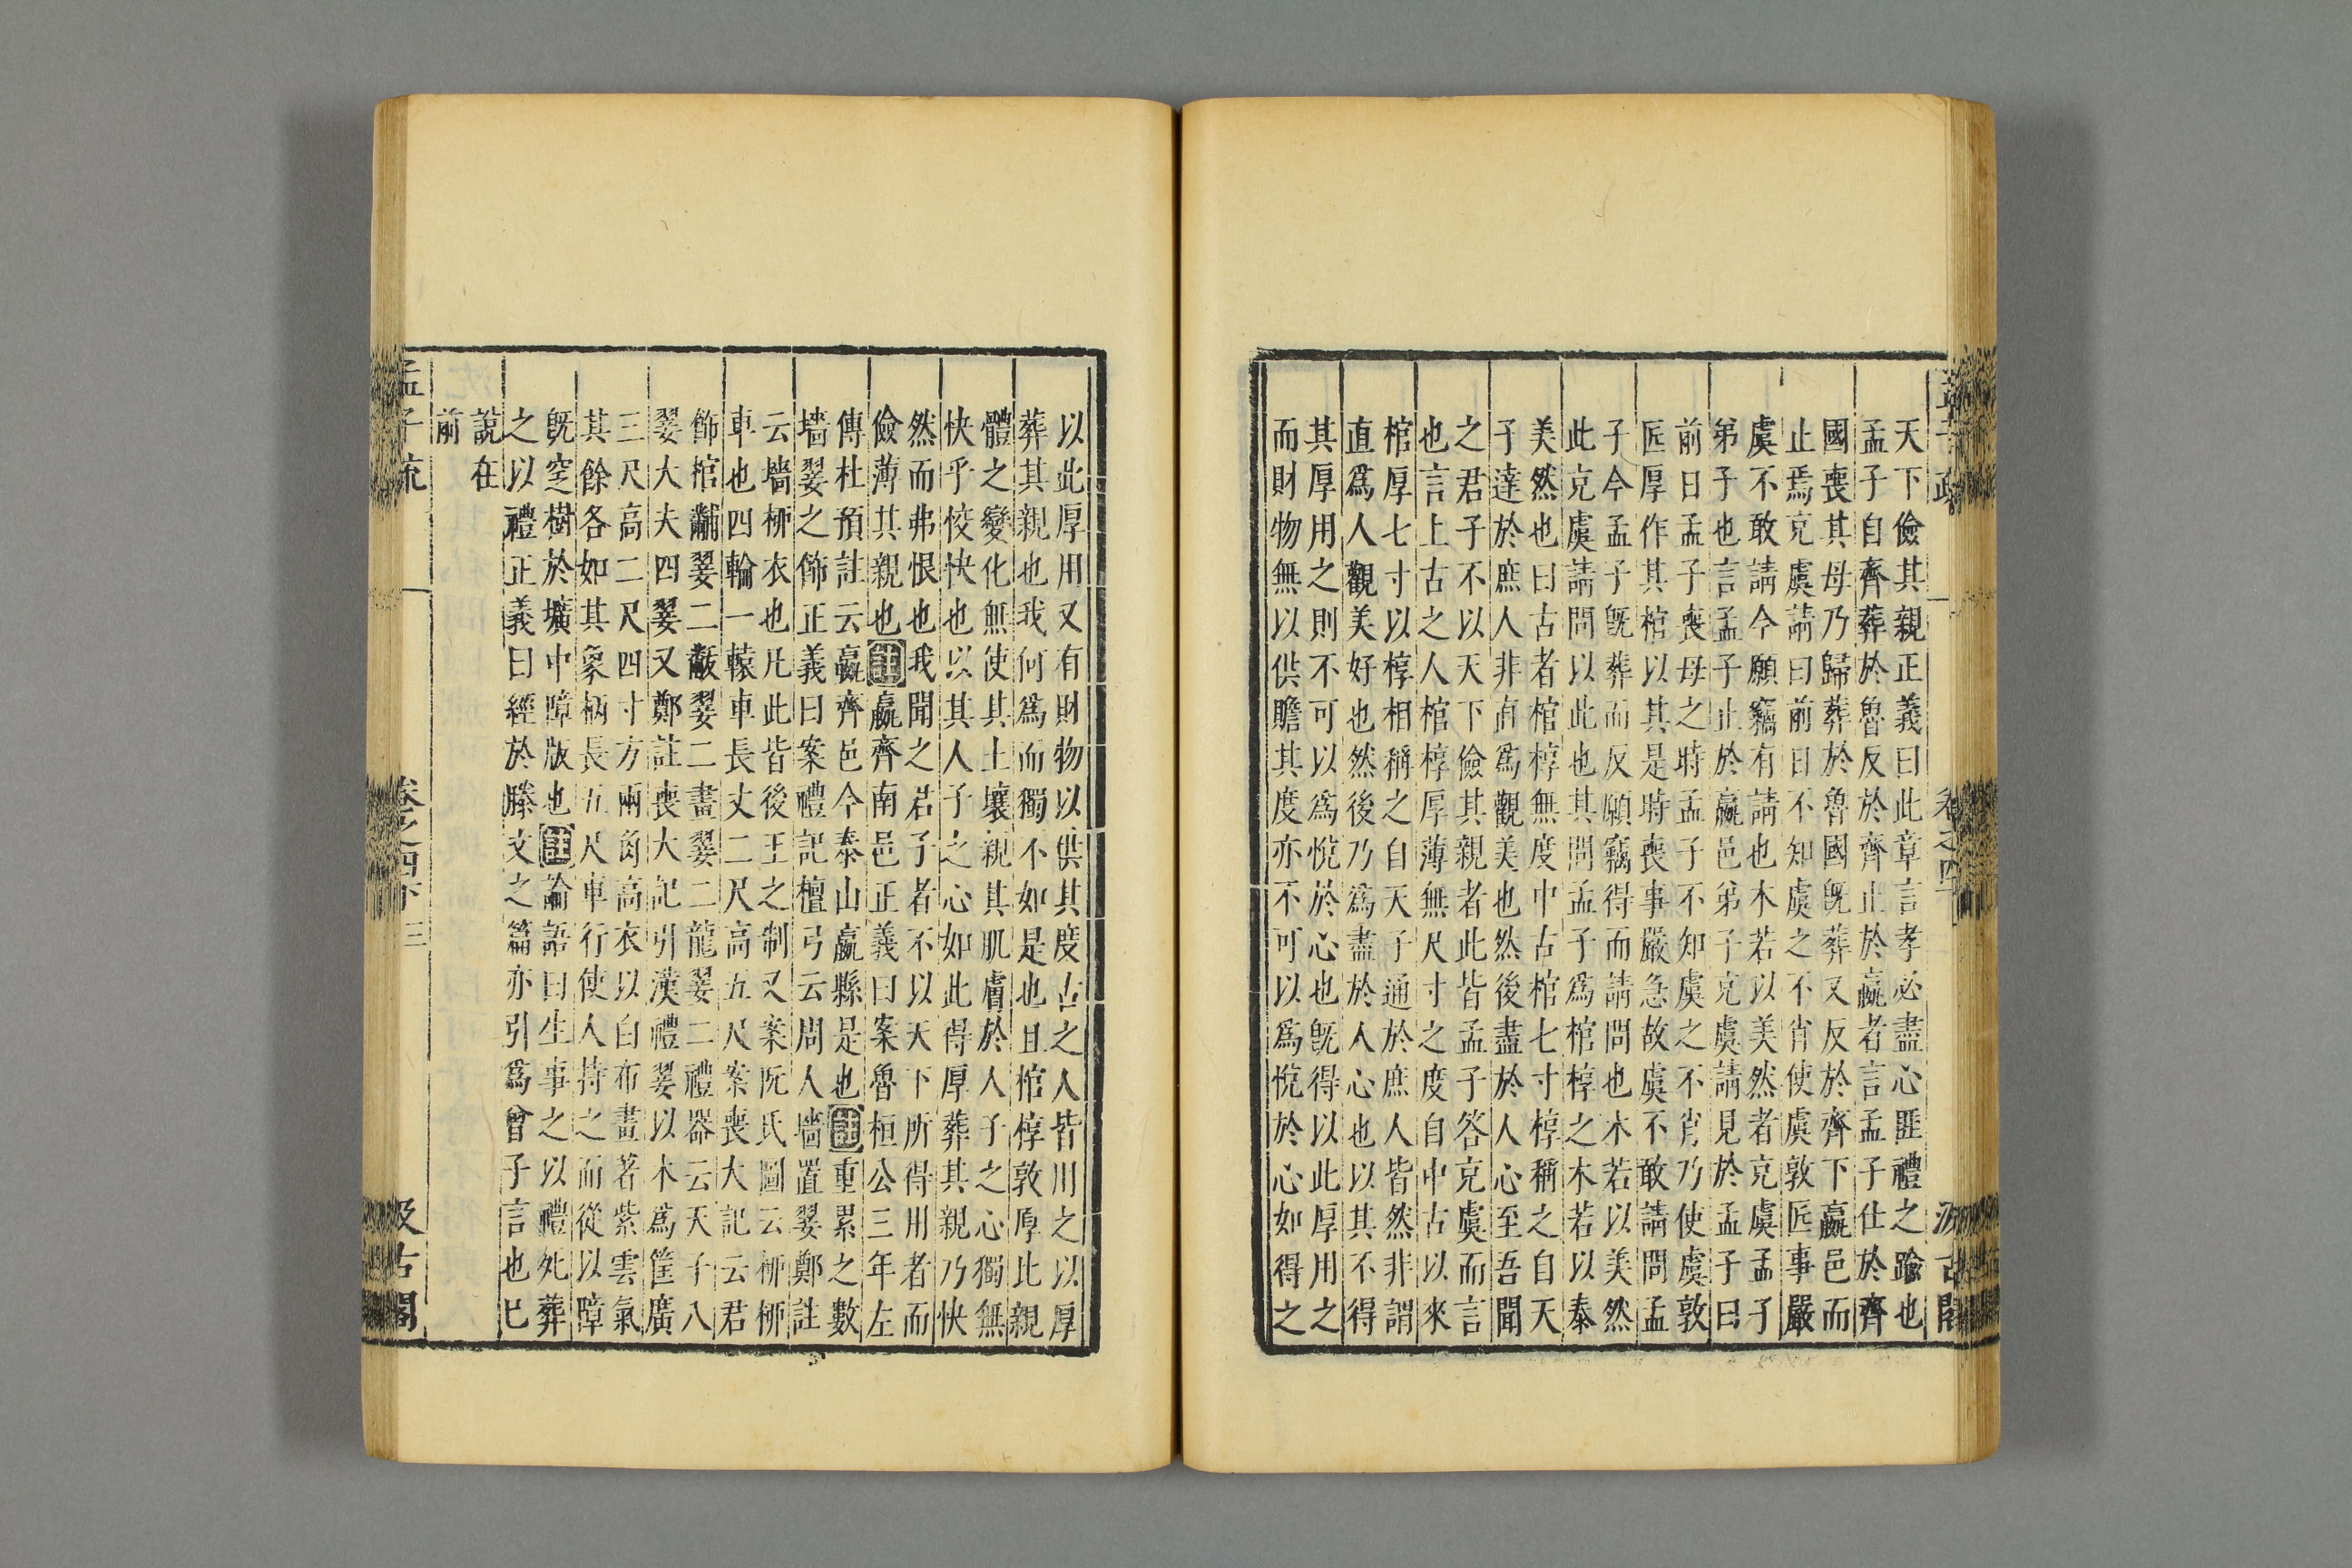 孟子疏
卷之四下
汲古閣
天下儉其親正義曰此章言孝必盡心匪禮之踰也
孟子自齊葬於魯反於齊止於嬴者言孟子仕於齊
國喪其母乃歸葬於魯國旣葬又反於齊下嬴邑而
止焉充虞請曰前日不知虞之不肖使虞敦匠事嚴
虞不敢請今願竊有請也木若以美然者克虞孟子
弟子也言孟子止於嬴邑弟子克虞請見於孟子曰
前日孟子喪母之時孟子不知虞之不肖乃使虞敦
匠厚作其棺以其是時喪事嚴急故虞不敢請問孟
子今孟子旣葬而反願竊得而請問也木若以美然
此克虞請問以此也其問孟子爲棺椁之木若以泰
美然也曰古者棺椁無度中古棺七寸椁稱之自天
子達於庶人非直爲觀美也然後盡於人心至吾聞
之君子不以天下儉其親者此皆孟子答克虞而言
也言上古之人棺椁厚薄無尺寸之度自中古以來
棺厚七寸以椁相稱之自天子通於庶人皆然非謂
直爲人觀美好也然後乃爲盡於人心也以其不得
其厚用之則不可以爲悅於心也旣得以此厚用之
而財物無以供贍其度亦不可以爲悅於心如得之
以此厚用又有財物以供其度古之人皆用之以厚
葬其親也我何爲而獨不如是也且棺椁敦厚比親
體之變化無使其土壤親其肌膚於人子之心獨無
快乎恔快也以其人子之心如此得厚葬其親乃快
然而弗恨也我聞之君子者不以天下所得用者而
儉薄其親也註嬴齊南邑正義曰案魯桓公三年左
傳杜預註云嬴齊邑今泰山嬴縣是也註重累之數
墻翣之飾正義曰案禮記檀弓云周人墻置翣鄭註
云墻柳衣也凡此皆後王之制又案阮氏圖云柳柳
車也四輪一轅車長丈二尺高五尺案喪大記云君
飾棺黼翣二黻翣二畫翣二龍翣二禮器云天子八
翣大夫四翣又鄭註喪大記引漢禮翣以木爲筐廣
三尺高二尺四寸方兩角高衣以白布畫著紫雲氣
其餘各如其象柄長五尺車行使人持之而從以障
旣窆樹於壙中障版也註論語曰生事之以禮死葬
之以禮正義曰經於滕文之篇亦引爲曾子言也已
說在
前
孟子疏
卷之四下
三
汲古閣